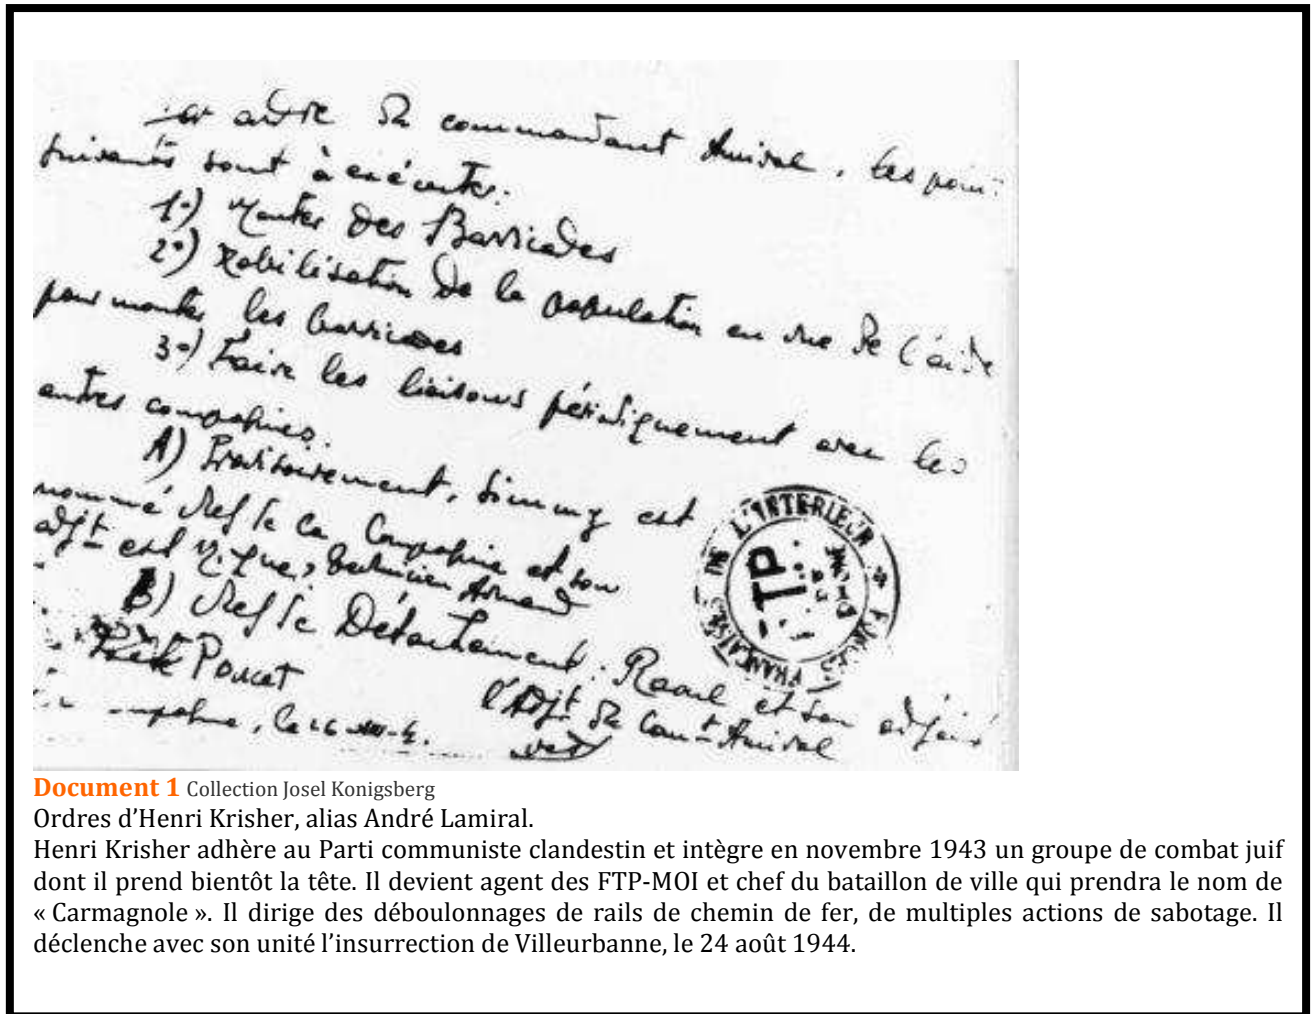 ordre de commandant Amiral, les poin
suivants sont à exécuter.
1°) Monter des Barricades
2°) Mobilisation de la population en vue de l'aide
pour monter les barricades
3°) Faire les liaisons périodiquement avec les
autres compagnies.
A) Provisoirement, Simmy est
nommé chef de la Compagnie et son
adjt est technicien Armand
B) Chef de Détachement : Raoul et son adjoint
Petit Poucet
l'Adjt de Com-t Amiral
FORCES FRANÇAISES DE L'INTERIEUR
TP
Document 1 Collection Josel Konigsberg
Ordres d'Henri Krisher, alias André Lamiral.
Henri Krisher adhère au Parti communiste clandestin et intègre en novembre 1943 un groupe de combat juif
dont il prend bientôt la tête. Il devient agent des FTP-MOI et chef du bataillon de ville qui prendra le nom de
« Carmagnole ». Il dirige des déboulonnages de rails de chemin de fer, de multiples actions de sabotage. Il
déclenche avec son unité l'insurrection de Villeurbanne, le 24 août 1944.